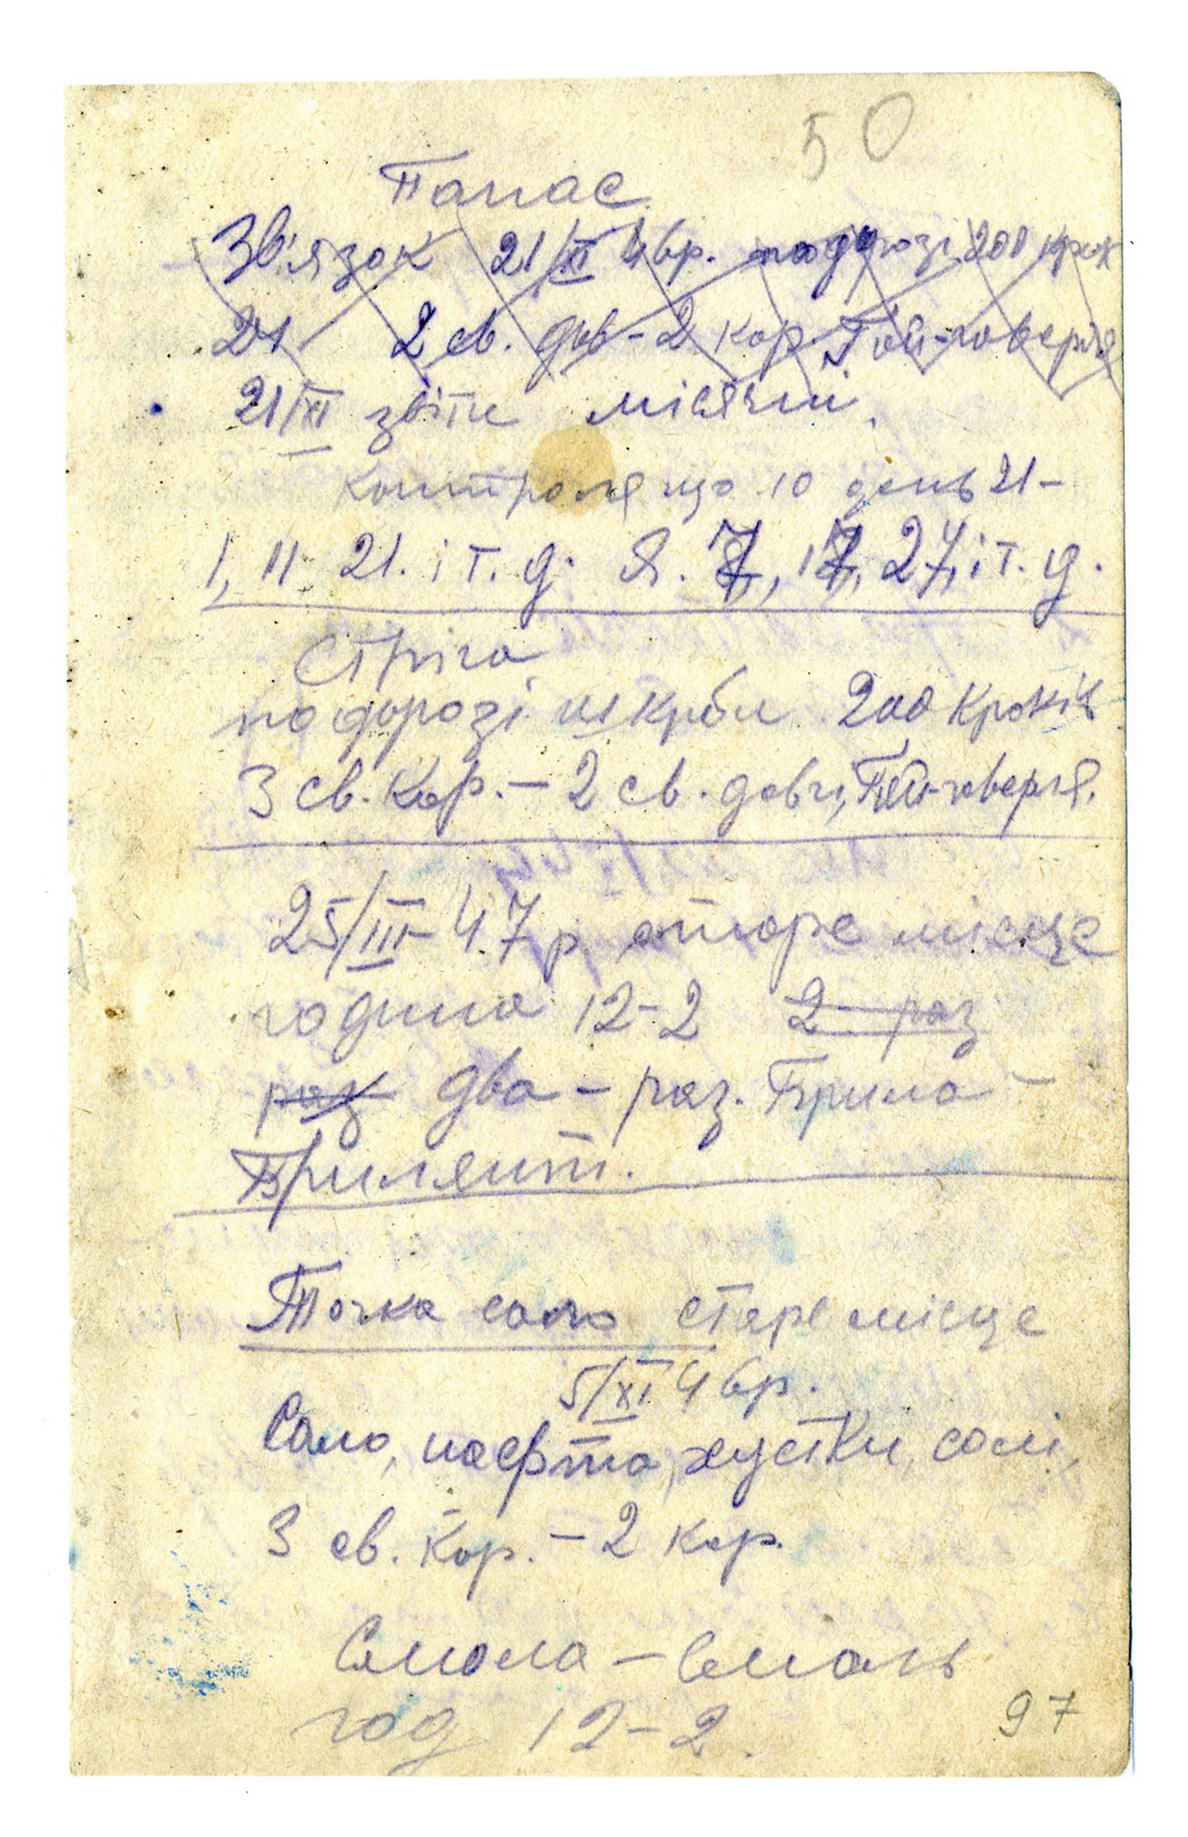 50
Панас
Зв'язок 21/XI 46р. по дорозі 200 крок
21 2 св. дов - 2 кор. Гой-говерля
21/XI звіти місячні.
контроля що 10 день 21-
1, 11. 21. і т. д. Я. 7, 17, 27, і т. д.
Стріга
по дорозі 200 кроків
3 св. кор. - 2 св. довгі, Гой-говерля.
25/III 47 р старе місце
година 12-2 2 раз
раз два - раз. Брила -
Брилянт.
Точка сало старе місце
5/XI 46р.
Сало, нафта, хустки, солі,
3 св. кор. - 2 кор.
Смола - Смаль
год 12-2.
97